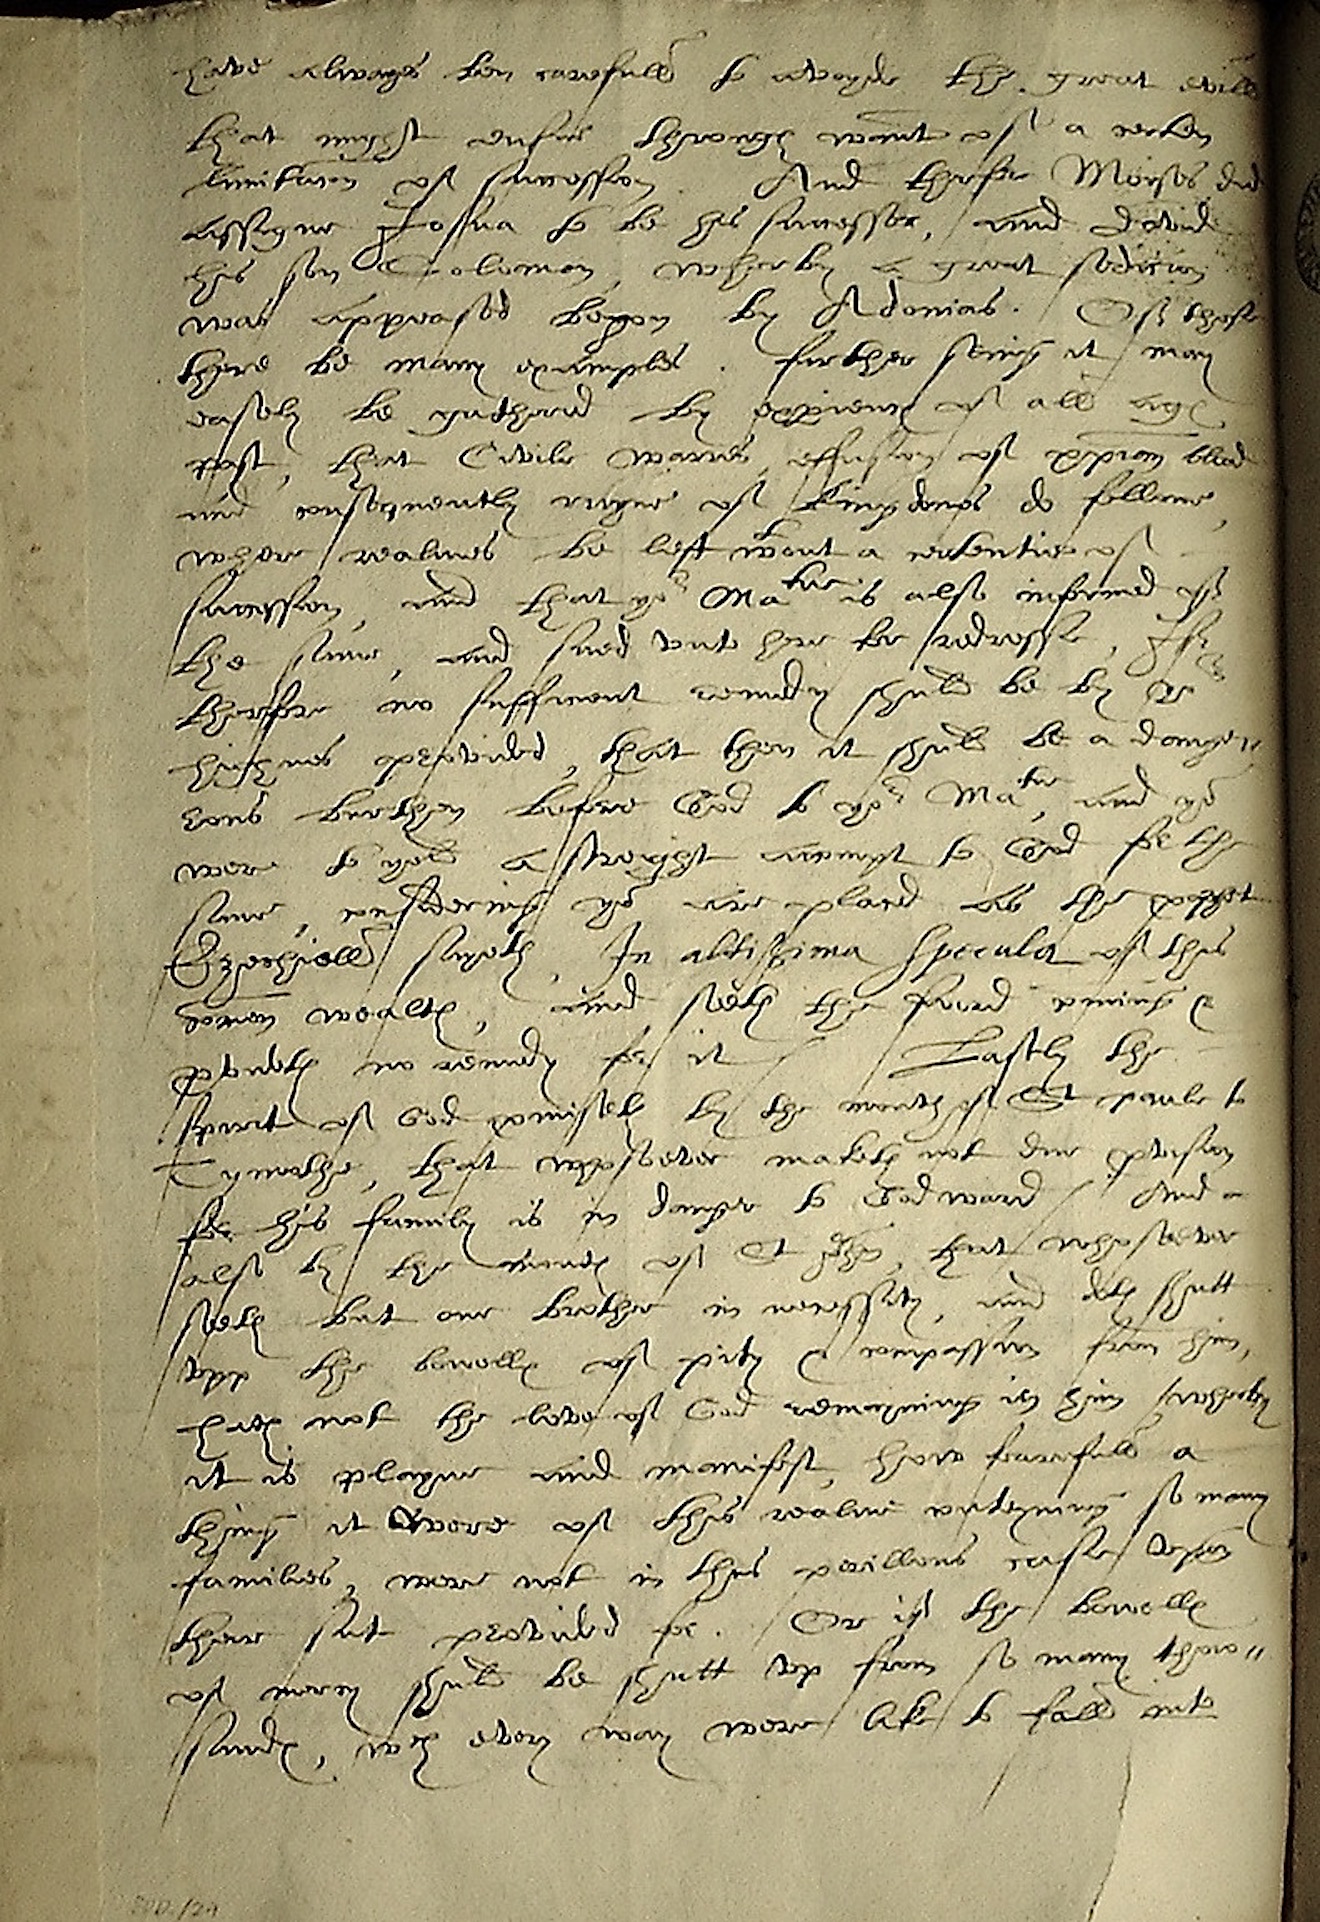 have alwayes ben carefull to avoyde the great evills
that might ensue through want of a certen
limitacion of succession. And therfore Moises did
assigne Josua to be his successor, and David
his son Solomon, wherby a great sedicion
was appeased begon by Adonias. Of these
there be many examples. further seing it may
easely be gathered by experience of all ages
past, that Civile warres, effusion of xpian bloud
and consequently ruyne of kingdoms do followe,
where realmes be left wtout a certentie of
succession, and that yor Matie is also informed of
the same, and sued unto here for redresse, If
therfore no sufficient remedy should be by yor
highnes provided, that then it should be a danger=
ous burthen before God to yor Matie, and yo
were to yeld a streight accompt to God for the
same, considering yo are placed as the prophet
Ezechiell sayeth, In altissima specula of this
comen wealth, and seeth the sword coming &
provideth no remedy for it / Lastly the
spirit of God promiseth by the mouth of St paule to
Tymothe, that whosoever maketh not due provision
for his family is in danger to Godward / And
also by the mouth of St John, that whosoever
seeth but one brother in necessity, and doth shutt
upp the bowells of pity & compassion from him,
hath not the love of God remayning in him / wherby
it is playne and manifest, how fearefull a
thing it were of this realme conteyning so many
families, were not in this perillous case upon
their sute provided for. Or if the bowells
of mercy should be shutt up from so many thow=
sands, wch every way were like to fall into